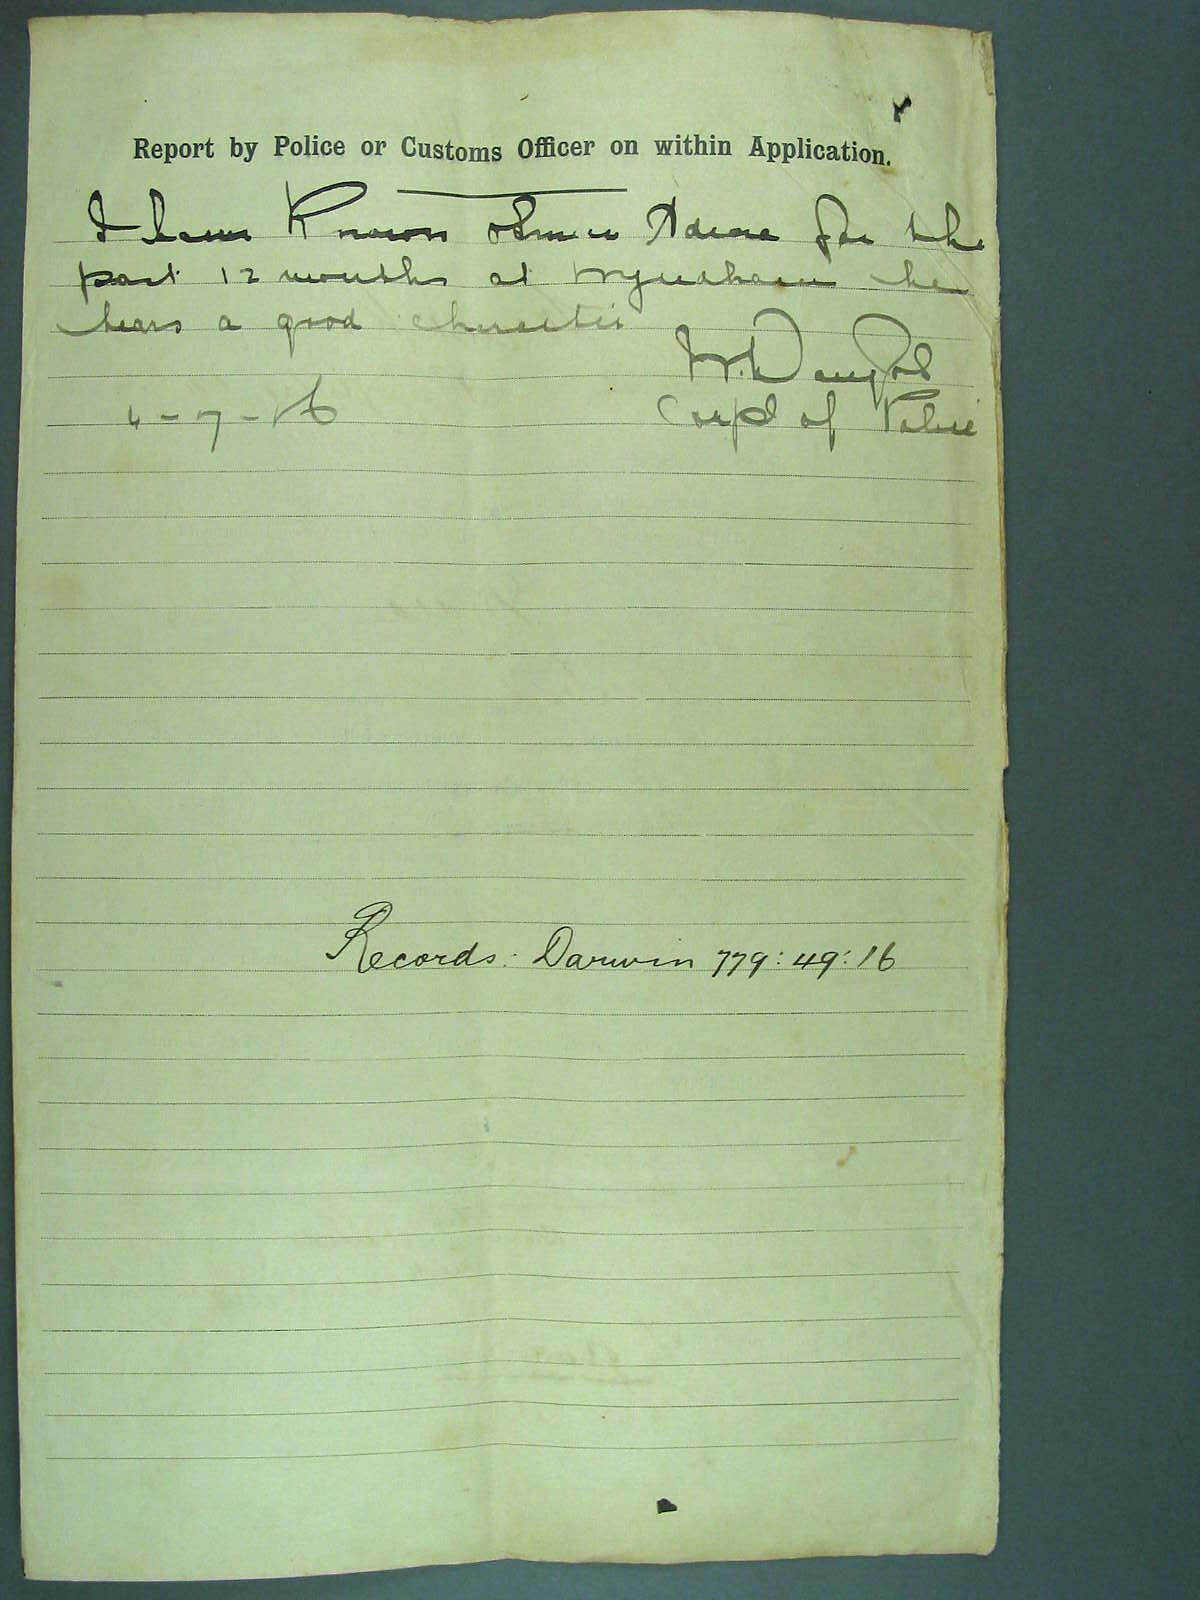 Report by Police or Customs Officer on within Application.
I have Known for the
past 12 months at Wyndham he
bears a good character
Corpl of Police
6-7-16
Records: Darwin 779:49:16